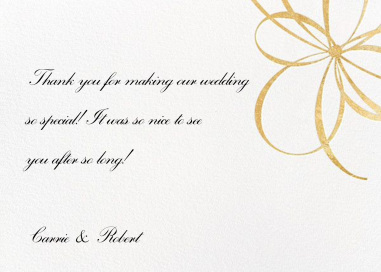 Thank you for making our wedding
so special! It was so nice to see
you after so long!
Carrie & Robert